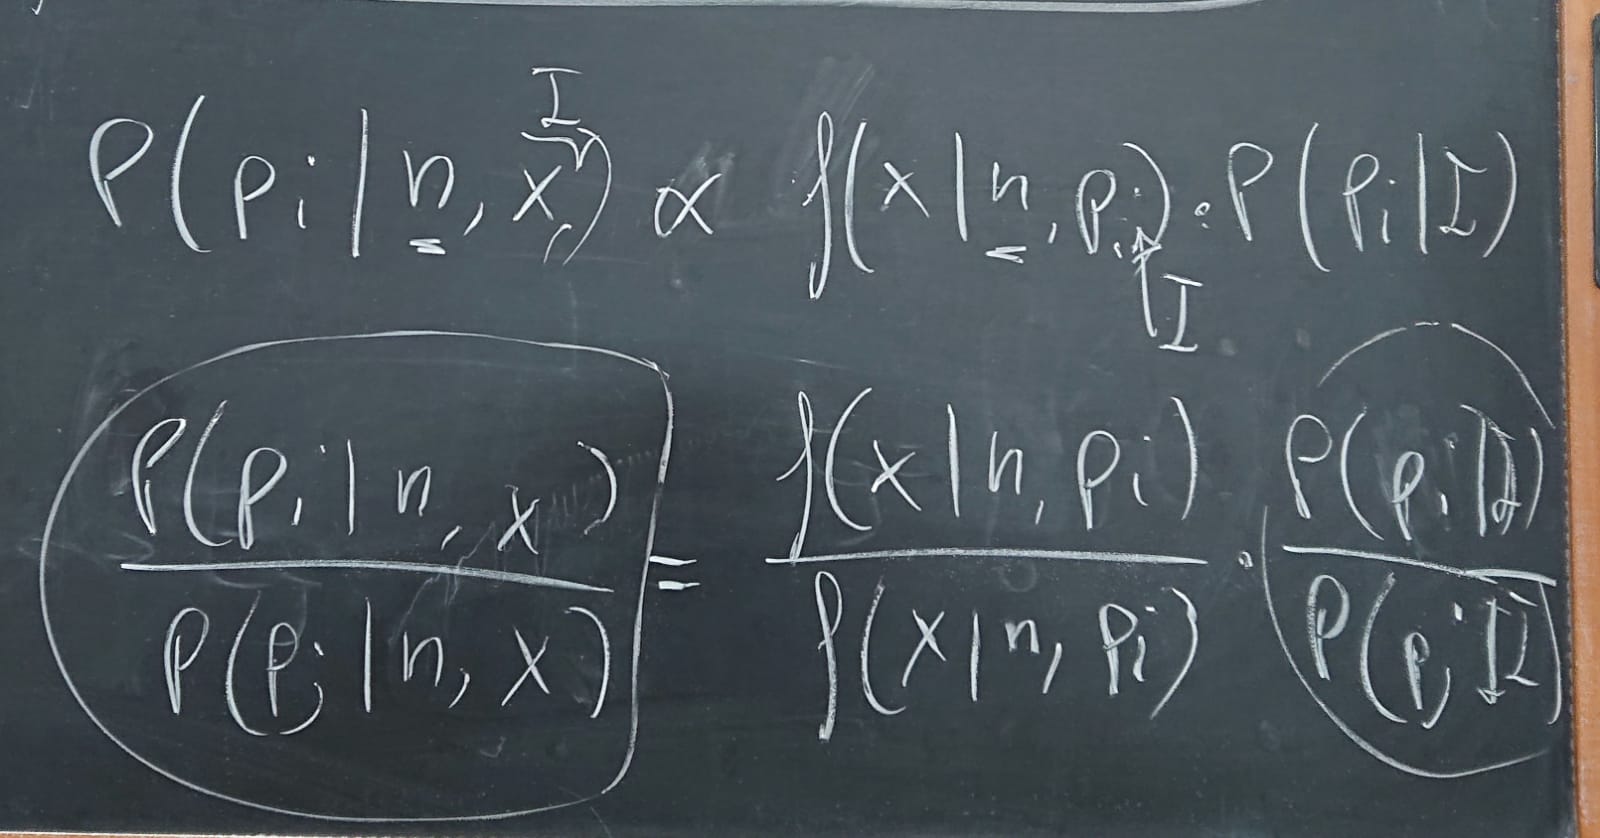 I
P(pᵢ | n, x,) ∝ f(x | n, pᵢ) · P(pᵢ | I)
I
P(pᵢ | n, x) / P(pⱼ | n, x) = f(x | n, pᵢ) / f(x | n, pᵢ) · P(pᵢ | I) / P(pⱼ | I)